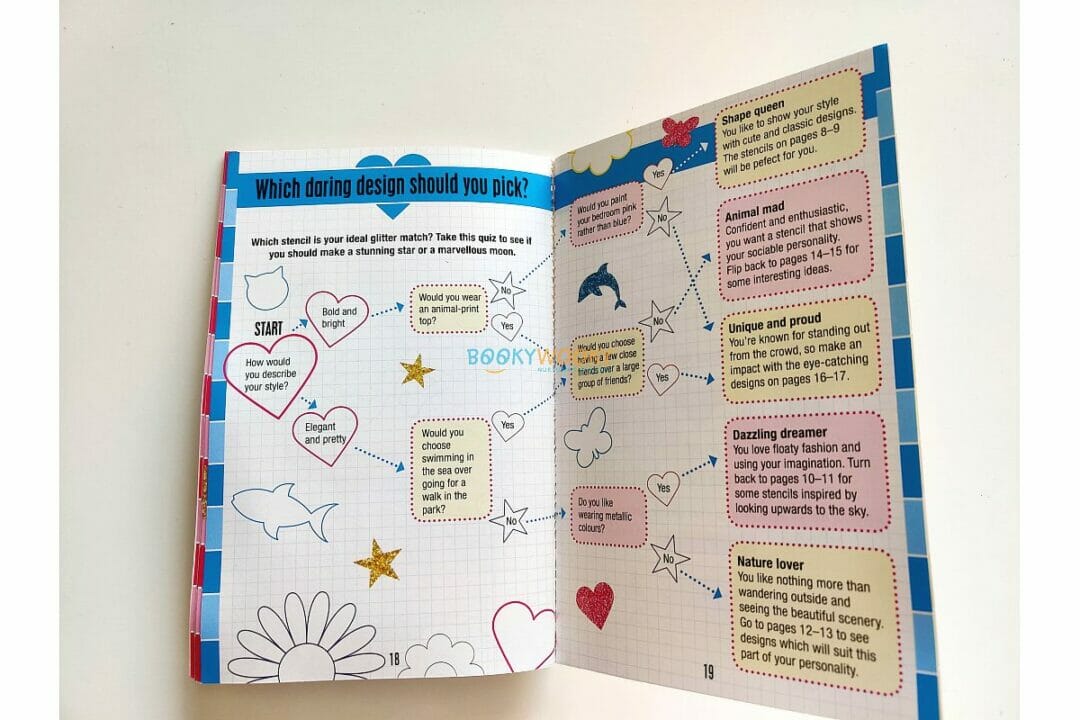 Which daring design should you pick?
Which stencil is your ideal glitter match? Take this quiz to see if
you should make a stunning star or a marvellous moon.
START
How would
you describe
your style?
Bold and
bright
Elegant
and pretty
Would you wear
an animal-print
top?
No
Yes
Would you
choose
swimming in
the sea over
going for a
walk in the
park?
Yes
No
18
Would you paint
your bedroom pink
rather than blue?
Yes
No
Would you choose
having a few close
friends over a large
group of friends?
No
Yes
Do you like
wearing metallic
colours?
Yes
No
Shape queen
You like to show your style
with cute and classic designs.
The stencils on pages 8–9
will be pefect for you.
Animal mad
Confident and enthusiastic,
you want a stencil that shows
your sociable personality.
Flip back to pages 14–15 for
some interesting ideas.
Unique and proud
You're known for standing out
from the crowd, so make an
impact with the eye-catching
designs on pages 16–17.
Dazzling dreamer
You love floaty fashion and
using your imagination. Turn
back to pages 10–11 for
some stencils inspired by
looking upwards to the sky.
Nature lover
You like nothing more than
wandering outside and
seeing the beautiful scenery.
Go to pages 12–13 to see
designs which will suit this
part of your personality.
19